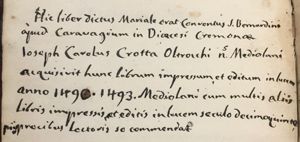 Hic liber dictus Mariale erat Conventus S. Bernardini
apud Caravagium in Diœcesi Cremonæ
Ioseph Carolus Crotta Oltrocchi Mediolani
acquisivit hunc librum impressum et editum in lucem
anno 1490. 1493. Mediolani cum multis aliis
libris impressis et editis in lucem seculo decimoquinto
piis precibus Lectoris se commendat